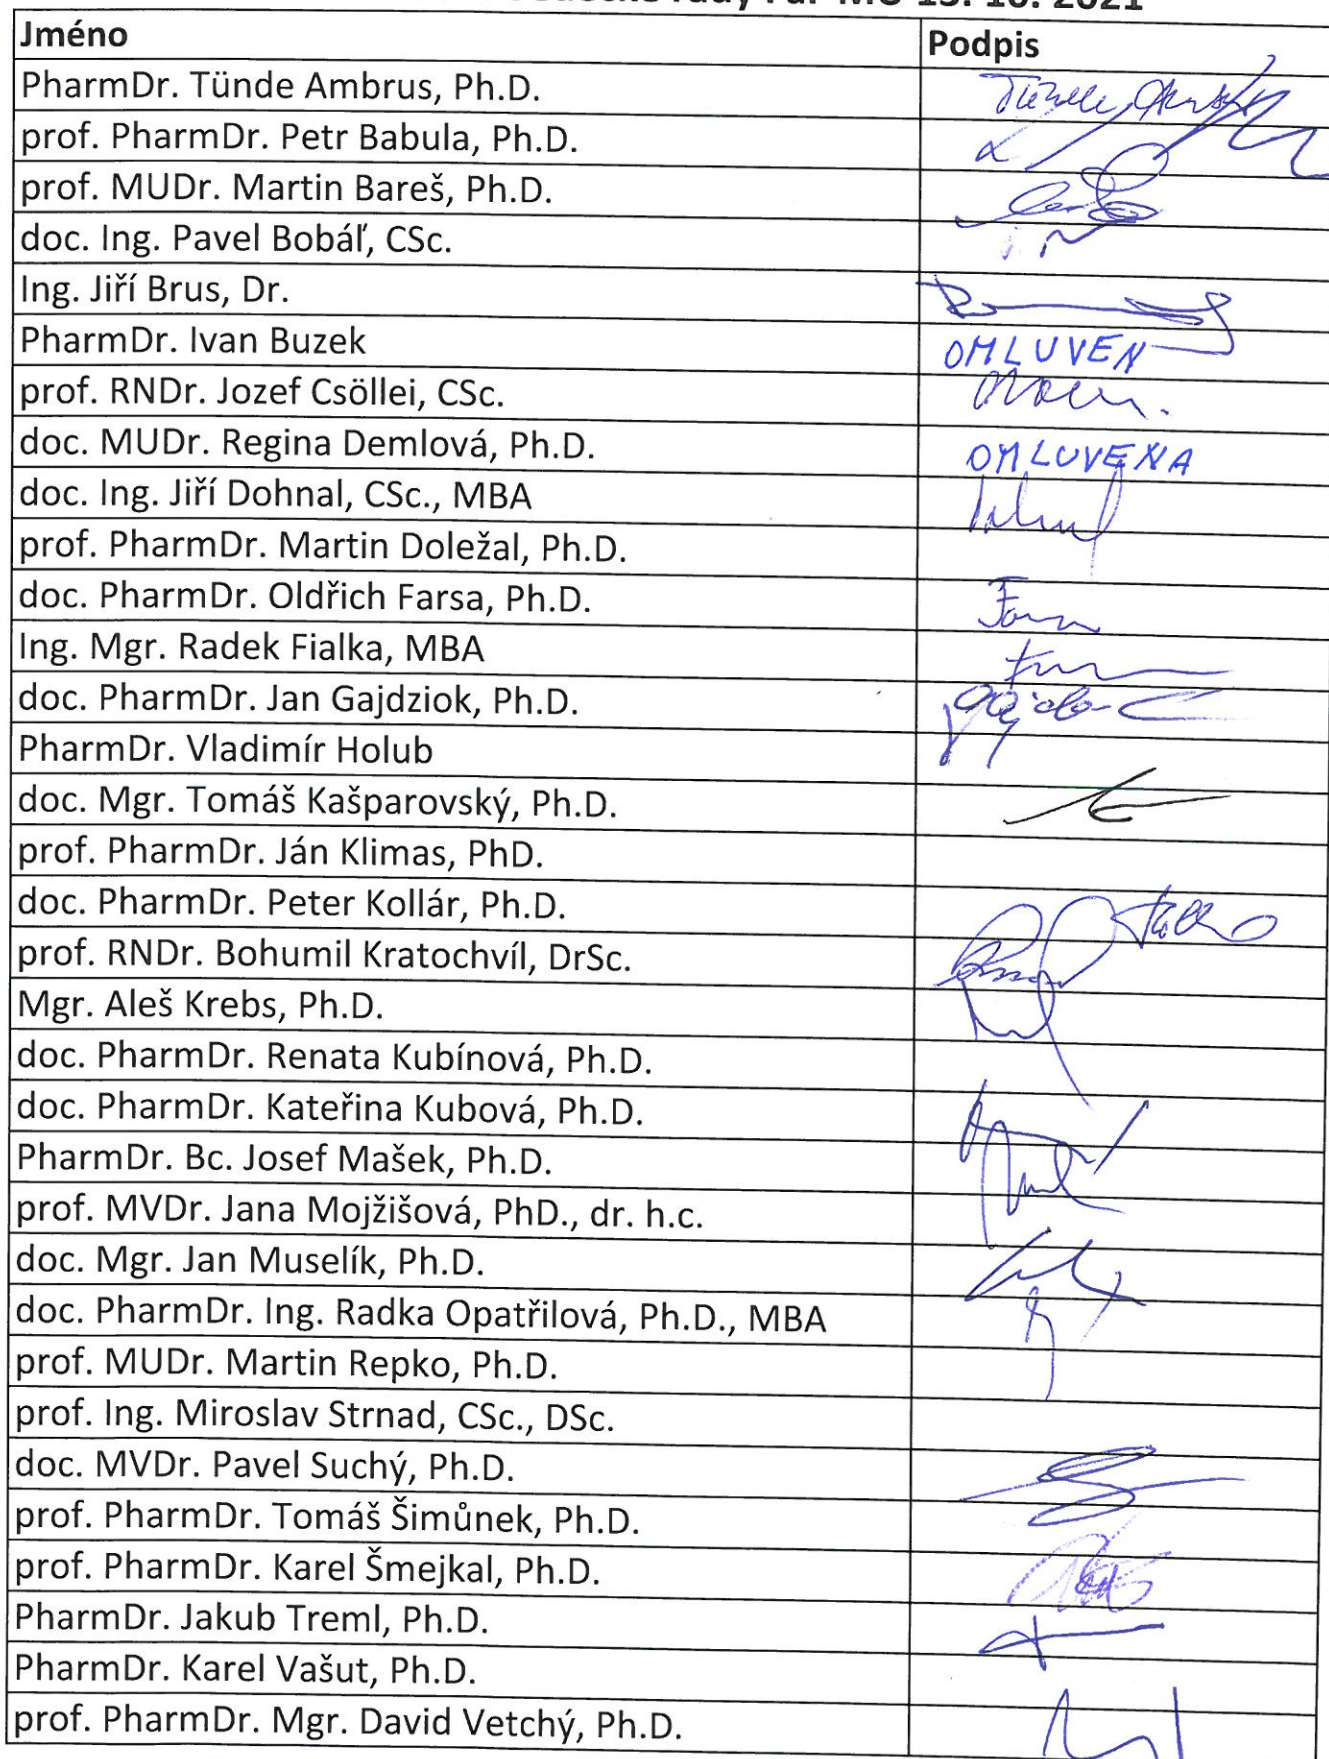 rady FaF MU 15. 10. 2021
Jméno Podpis
PharmDr. Tünde Ambrus, Ph.D.
prof. PharmDr. Petr Babula, Ph.D.
prof. MUDr. Martin Bareš, Ph.D.
doc. Ing. Pavel Bobáľ, CSc.
Ing. Jiří Brus, Dr.
PharmDr. Ivan Buzek OMLUVEN
prof. RNDr. Jozef Csöllei, CSc.
doc. MUDr. Regina Demlová, Ph.D. OMLUVENA
doc. Ing. Jiří Dohnal, CSc., MBA
prof. PharmDr. Martin Doležal, Ph.D.
doc. PharmDr. Oldřich Farsa, Ph.D.
Ing. Mgr. Radek Fialka, MBA
doc. PharmDr. Jan Gajdziok, Ph.D.
PharmDr. Vladimír Holub
doc. Mgr. Tomáš Kašparovský, Ph.D.
prof. PharmDr. Ján Klimas, PhD.
doc. PharmDr. Peter Kollár, Ph.D.
prof. RNDr. Bohumil Kratochvíl, DrSc.
Mgr. Aleš Krebs, Ph.D.
doc. PharmDr. Renata Kubínová, Ph.D.
doc. PharmDr. Kateřina Kubová, Ph.D.
PharmDr. Bc. Josef Mašek, Ph.D.
prof. MVDr. Jana Mojžišová, PhD., dr. h.c.
doc. Mgr. Jan Muselík, Ph.D.
doc. PharmDr. Ing. Radka Opatřilová, Ph.D., MBA
prof. MUDr. Martin Repko, Ph.D.
prof. Ing. Miroslav Strnad, CSc., DSc.
doc. MVDr. Pavel Suchý, Ph.D.
prof. PharmDr. Tomáš Šimůnek, Ph.D.
prof. PharmDr. Karel Šmejkal, Ph.D.
PharmDr. Jakub Treml, Ph.D.
PharmDr. Karel Vašut, Ph.D.
prof. PharmDr. Mgr. David Vetchý, Ph.D.